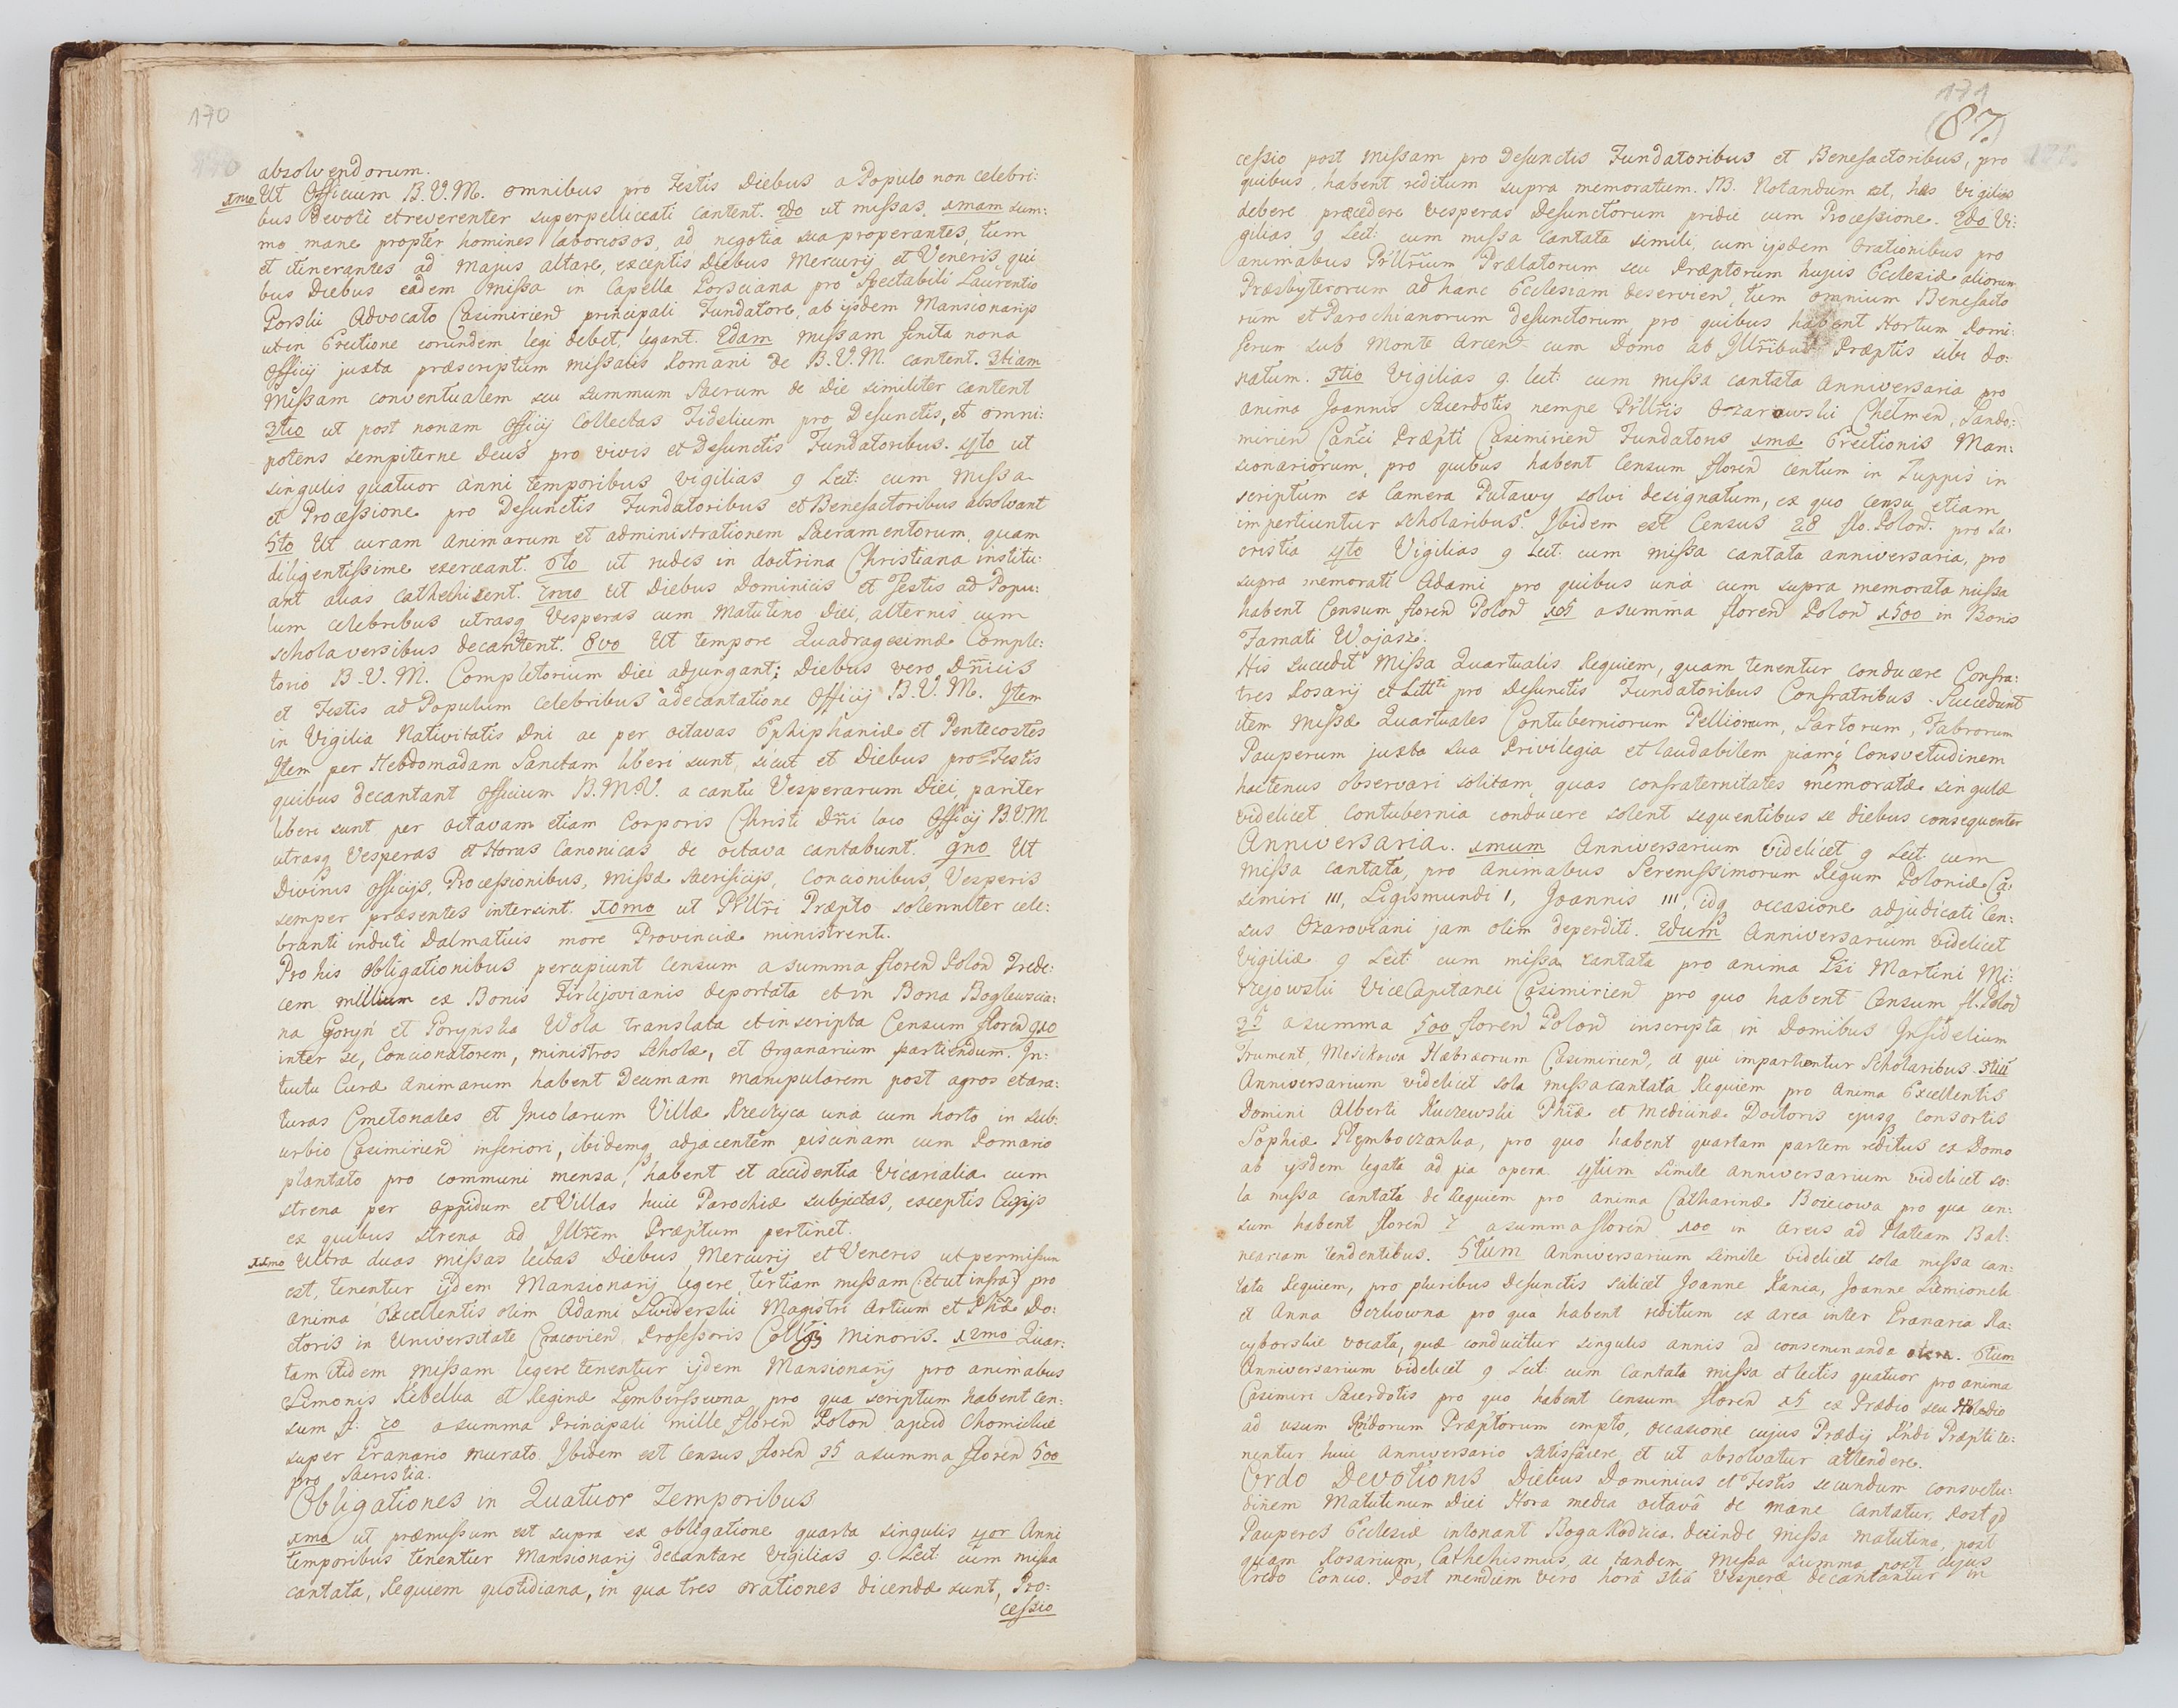 170
absolvendorum.
xmo Ut Officium B.V.M. omnibus pro Festis Diebus a Populo non celebri:
bus devotè et reverenter superpelliceati cantent. 2do ut missas, xmam sum:
mo mane propter homines laboriosos, ad negotia sua properantes, tum
et itinerantes ad majus altare, exceptis Diebus Mercurij et Veneris qui
bus Diebus eadem Missa in Capella Gorsciana pro Spectabili Laurentio
Gorski Advocato Casimirien principali Fundatore, ab ijsdem Mansionarijs
ut in Erectione eorundem legi debet, legant. 2dam Missam finita nona
Officij juxta præscriptum missalis Romani de B.V.M. cantent. 3tiam
Missam conventualem seu summum sacrum de Die similiter cantent
3tio ut post nonam Officij Collectas Fidelium pro Defunctis, et omni:
potens sempiterne Deus pro vivis et Defunctis Fundatoribus. 4to ut
singulis quatuor anni temporibus vigilias 9 Lect: cum Missa
et Processione pro Defunctis Fundatoribus et Benefactoribus absolvant
5to Ut curam animarum et administrationem Sacramentorum, quam
diligentissime exerceant. 6to ut rudes in doctrina Christiana institu:
ant ac cathehisent. ut Diebus Dominicis et Festis ad Popu:
lum celebribus utrasq Vesperas cum Matutino diei, alternis cum
schola versibus decantent. 8vo Ut tempore Quadragesimæ Comple:
torio B.V.M. Completorium Diei adjungant; Diebus vero Dnicis
et Festis ad Populum celebribus à decantatione Officij B.V.M. Item
in Vigilia Nativitatis Dni ac per octavas Ephiphaniæ et Pentecostes
Item per Hebdomadam Sanctam liberi sunt, sicut et Diebus pro Festis
quibus decantant Officium B.M.V. a cantu Vesperarum Diei, pariter
liberi sunt per octavam etiam Corporis Christi Dni loco Officij B.V.M.
utrasq Vesperas et Horas Canonicas de octava cantabunt. 9no Ut
Divinis officijs, Processionibus, Missæ sacrificijs, Concionibus, Vesperis
semper præsentes intersint. xomo ut Præpto solenniter cele:
branti induti Dalmaticis more Provinciæ ministrent.
Pro his obligationibus percipiunt censum a summa floren Polon Trede:
cem millium ex Bonis Firlejovianis deportata et in Bona Boglewscia:
na Goryń et Goryńska Wola translata et inscripta Censum floren 910
inter se, Concionatorem, ministros Scholæ, et Organarium partiendum. In:
tuitu Curæ animarum habent Decimam manipularem post agros et ara:
turas Cmetonales et Incolarum Villæ Rzeczyca unà cum horto in sub:
urbio Casimirien inferiori, ibidemq adjacentem piscinam cum Pomario
plantato pro communi mensa, habent et accidentia Vicarialia cum
strena per oppidum et Villas huic Parochiæ subjectas, exceptis
ex quibus strena ad Præptum pertinet.
xxmo Ultra duas missas lectas Diebus Mercurij et Veneris ut permissum
est, tenentur ijdem Mansionarij legere tertiam missam (et ut infra) pro
anima Excellentis olim Adami Swiderski Magistri Artium et Phiæ Do:
ctoris in Universitate Cracovien Professoris Collgij Minoris. x2mo Quar:
tam itidem missam legere tenentur ijdem Mansionarij pro animabus
Simonis Kibelka et Reginæ pro qua scriptum habent cen:
sum fl: 70 a summa Principali mille floren Polon apud Chomickie
super Granario murato. Ibidem est Census floren 35 a summa floren 500
pro Sacristia.
Obligationes in Quatuor Temporibus
xmo ut præmissum est supra ex obligatione quarta singulis 4or Anni
temporibus tenentur Mansionarij decantare Vigilias 9. Lect: cum missa
cantata, Requiem quotidiana, in qua tres orationes dicendæ sunt, Pro:
cessio
171
(87)
cessio post Missam pro Defunctis Fundatoribus et Benefactoribus, pro
quibus habent reditum supra memoratum. NB. Notandum est, has Vigilias
debere præcedere vesperas Defunctorum pridie cum Processione. 2do Vi:
gilias 9 Lect: cum missa Cantata simili, cum ijsdem orationibus pro
animabus Prælatorum seu Præptorum hujus Ecclesiæ aliorum
Præsbyterorum ad hanc Ecclesiam deservien, tum omnium Benefacto
rum et Parochianorum defunctorum, pro quibus habent Hortum Pomi:
ferum sub monte Arcen cum Domo ab Præptis sibi do:
natum. 3tio Vigilias 9. lect: cum missa cantata anniversaria pro
anima Joannis Sacerdotis nempe Ozarowski Chelmen, Sando:
mirien Canci Præpti Casimirien Fundatoris xmæ Erectionis Man:
sionariorum, pro quibus habent Censum floren centum in Zuppis in
scriptum ex Camera Pulawy solvi designatum, ex quo censu etiam
impertiuntur scholaribus. Ibidem est Census 28 flo. Polon. pro Sa:
cristia 4to Vigilias 9 Lect: cum missa cantata anniversaria, pro
supra memorati Adami pro quibus unà cum supra memorata missa
habent Censum floren Polon 105 a summa floren Polon 1500 in Bonis
Famati Wojasz.
His succedit Missa Quartualis Requiem, quam tenentur conducere Confra:
tres Rosarij et pro Defunctis Fundatoribus Confratribus. Succedunt
item Missæ Quartuales Contuberniorum Pellionum, Sartorum, Fabrorum
Pauperum juxta sua Privilegia et laudabilem piamq Consvetudinem
hactenus observari solitam, quas confraternitates memoratæ singulæ
videlicet Contubernia conducere solent sequentibus se diebus consequenter
Anniversaria. xmum Anniversarium videlicet 9 Lect: cum
Missa cantata, pro animabus Serenissimorum Regum Poloniæ Ca:
simiri III, Sigismundi I, Joannis III, idq occasione adjudicati Cen:
sus Ozaroviani jam olim deperditi. 2dum Anniversarium videlicet
Vigiliæ 9 Lect: cum missa cantata pro anima Martini Mi:
rzejowski ViceCapitanei Casimirien pro quo habent Censum fl. Polon
35 a summa 500 floren Polon inscripta in Domibus Infidelium
Trument, Mesikowa Hæbræorum Casimirien, ex qui impartientur Scholaribus. 3tiu
Anniversarium videlicet sola missa cantata Requiem pro Anima Excellentis
Domini Alberti Kuczewski Phiæ et Medicinæ Doctoris ejusq consortis
Sophiæ, pro quo habent quartam partem reditus ex Domo
ab ijsdem legata ad pia opera. 4tum Simile anniversarium videlicet so:
la missa cantata de Requiem pro anima Catharinæ pro qua cen:
sum habent floren 7 a summa floren 100 in areis ad Plateam Bal:
neariam tendentibus. 5tum Anniversarium simile videlicet sola missa can:
tata Requiem, pro pluribus Defunctis scilicet Joanne Kania, Joanne Siemionek
et Anna pro qua habent reditum ex area inter Granaria Ra:
cyborskie vocata, quæ conducitur singulis annis ad conseminanda olera. 6tum
Anniversarium videlicet 9 Lect: cum Cantata missa et lectis quatuor pro anima
Casimiri Sacerdotis pro quo habent Censum floren 15 ex Prædio seu
ad usum Rndorum Præptorum empto, occasione cujus Prædij Rndi Præpti te:
nentur huic Anniversario satisfacere, et ut absolvatur attendere.
Ordo Devotionis Diebus Dominicis et Festis secundum consvetu:
dinem Matutinum Diei Hora media octavâ de mane Cantatur, Post qd
Pauperes Ecclesiæ intonant Boga Rodzica. deinde Missa matutina, post
quam Rosarium, Cathehismus, ac tandem Missa summa post cujus
Credo Concio. Post meridiem vero horâ 3tiâ Vesperæ decantantur in